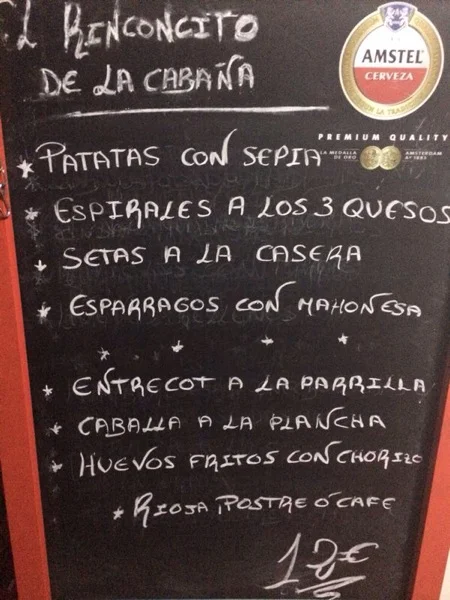 EL RINCONCITO
DE LA CABAÑA
AMSTEL
CERVEZA
PREMIUM QUALITY
LA MEDALLA
DE ORO
AMSTERDAM
Aº 1883
* PATATAS CON SEPIA
* ESPIRALES A LOS 3 QUESOS
* SETAS A LA CASERA
* ESPARRAGOS CON MAHONESA
* * * *
* ENTRECOT A LA PARRILLA
* CABALLA A LA PLANCHA
* HUEVOS FRITOS CON CHORIZO
* RIOJA ¡POSTRE O CAFE
12€